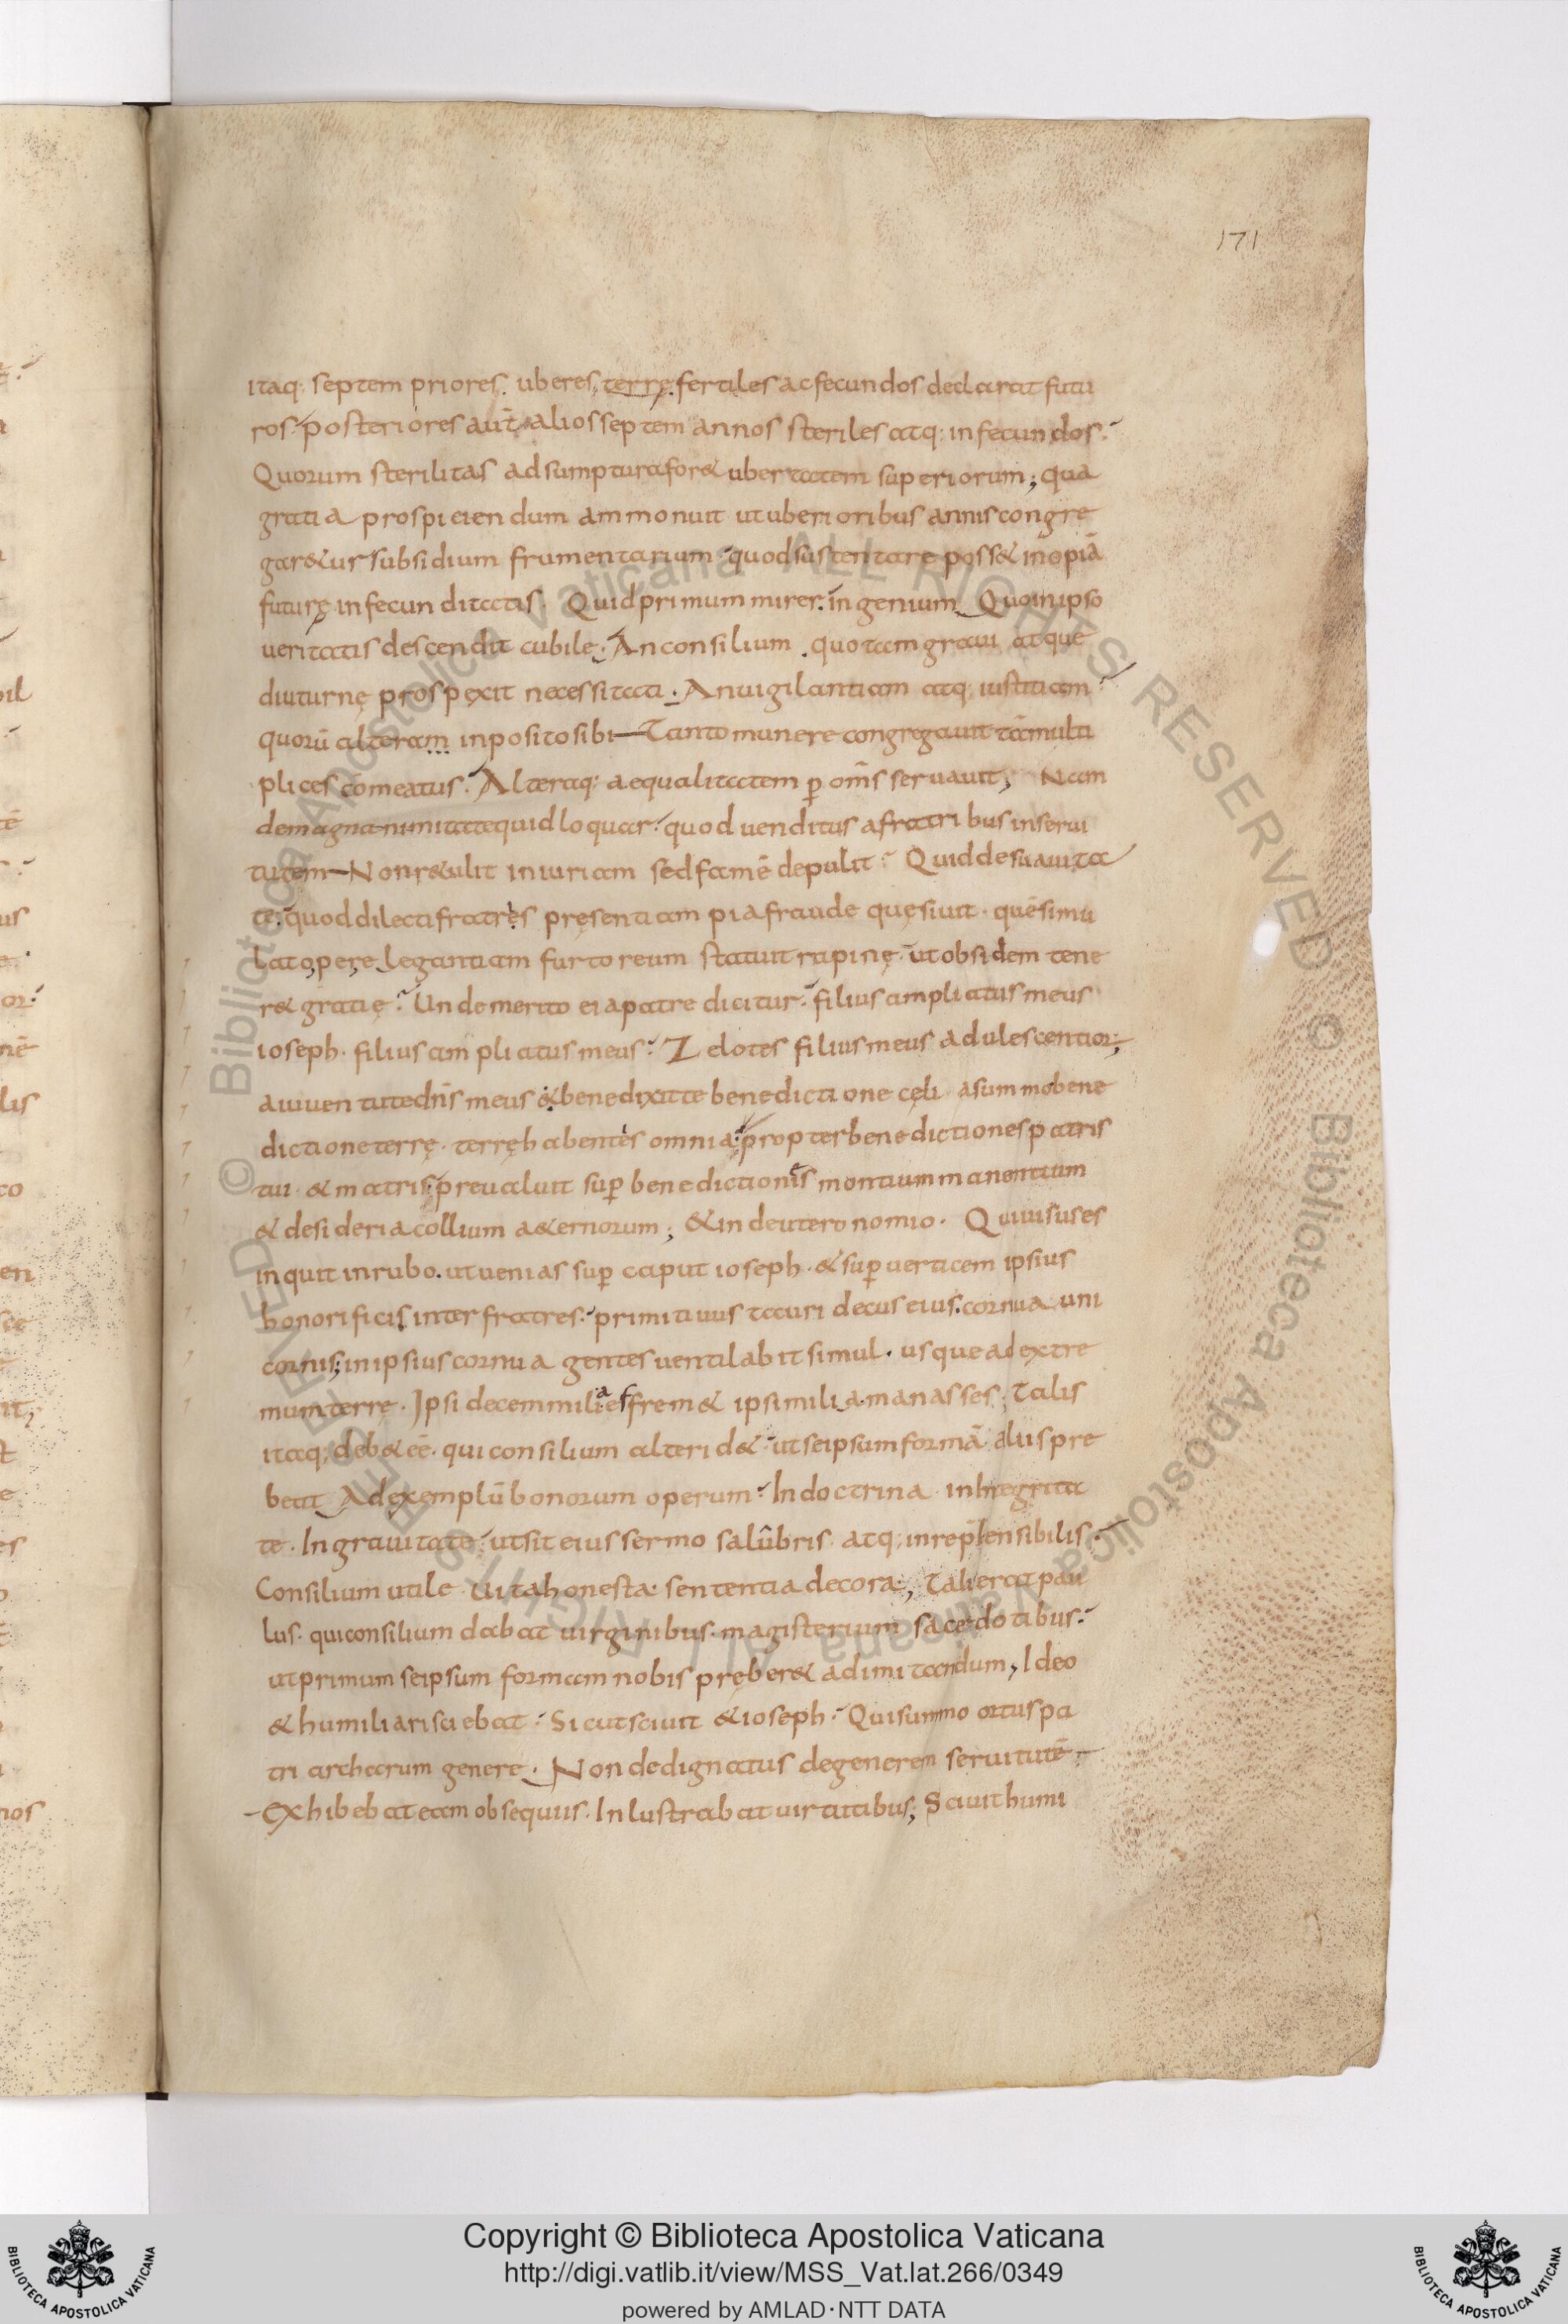 171
itaq; septem priores. uberes terrę. fertiles ac fecundos declarat futu
ros. posteriores aut̄ alios septem annos steriles atq; infecundos.
Quorum sterilitas adsumptura for& ubertatem superiorum; qua
gratia prospiciendum ammonuit ut uberioribus annis congre
gar&ur subsidium frumentarium. quod sustentare poss& inopiā
futurę infecunditatis. Quid primum mirer. ingenium Quo in ipso
ueritatis descendit cubile. An consilium quo tam graui atque
diuturnę prospexit necessitati. An uigilantiam atq; iustitiam
quorū alteram inposito sibi Tanto munere congregauit tā multi
plices cōmeatus. Alteraq; aequalitatem ꝑ om̄s seruauit; Nam
de magnanimitate quid loquar. quod uenditus a fratribus in serui
tutem Non r&ulit iniuriam sed famē depulit. Quid de suauita
te. quod dilecti fratrės pręsentiam pia fraude quęsiuit. quē simu
lato pere legantiam furto reum statuit rapinę. ut obsidem tene
r& gratię. Unde merito ei a patre dicitur. filius ampliatus meus
ioseph. filius ampliatus meus. Zelotes filius meus adulescentior;
aiuuen tute dn̄s meus & benedixit te benedictione cęli a summo bene
dictione terrę. terrę habentės omnia. propter benedictiones patris
tui. & matris preualuit suꝑ benedictionis montium manentium
& desideria collium a&ernorum; & in deuteronomio. Qui uisus es
inquit in rubo. ut uenias suꝑ caput ioseph. & suꝑ uerticem ipsius
honorificis inter fratres. primitiuus tauri decus eius. cornua uni
cornis; in ipsius cornua gentes uentilabit simul. usque ad extre
mum terre. Ipsi decem milia effrem & ipsi milia manasses; Talis
itaq; deb& eē. qui consilium alteri d&. ut seipsum formā aliis pre
beat Ad exemplū bonorum operum. In doctrina in integrita
te. In grauitate. ut sit eius sermo salūbris atq; inrep̄hensibilis.
Consilium utile Uita honesta. sententia decora; Talis erat pau
lus. qui consilium dabat uirginibus. magisterium sacerdotibus.
ut primum seipsum formam nobis pręber& ad imitandum, Ideo
& humiliari sciebat. Sicut sciuit & ioseph. Qui summo ortus pa
triarcharum genere. Non dedignatus degenerem seruitutē
Exhibebat eam obsequiis. Inlustrabat uirtutibus; Sciuit humi
Copyright © Biblioteca Apostolica Vaticana
http://digi.vatlib.it/view/MSS_Vat.lat.266/0349
powered by AMLAD·NTT DATA